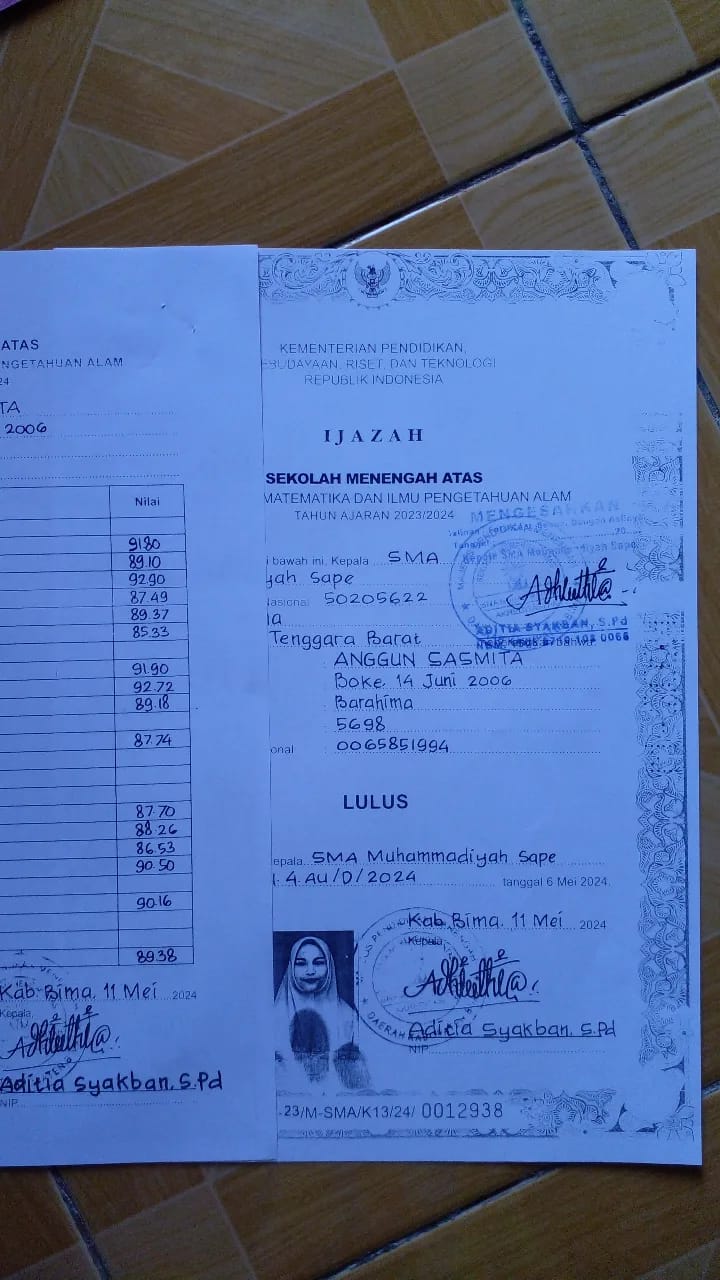 ATAS
NGETAHUAN ALAM
24
TA
2006
Nilai
91.80
89.10
92.90
87.49
89.37
85.33
91.90
92.72
89.18
87.74
87.70
88.26
86.53
90.50
90.16
89.38
Kab Bima, 11 Mei 2024
Kepala,
Aditia Syakban, S.Pd
NIP
KEMENTERIAN PENDIDIKAN,
EBUDAYAAN, RISET, DAN TEKNOLOGI
REPUBLIK INDONESIA
IJAZAH
SEKOLAH MENENGAH ATAS
MATEMATIKA DAN ILMU PENGETAHUAN ALAM
TAHUN AJARAN 2023/2024
MENGESAHKAN
i bawah ini, Kepala SMA
yah Sape
Nasional 50205622
la
Tenggara Barat
ADITIA SYAKBAN, S.Pd
ANGGUN SASMITA
Boke, 14 Juni 2006
Barahima
5698
onal 0065851994
LULUS
epala SMA Muhammadiyah Sape
4.AU/D/2024 tanggal 6 Mei 2024
Kab Bima, 11 Mei 2024
Kepala,
Aditia Syakban, S.Pd
NIP
-23/M-SMA/K13/24/ 0012938